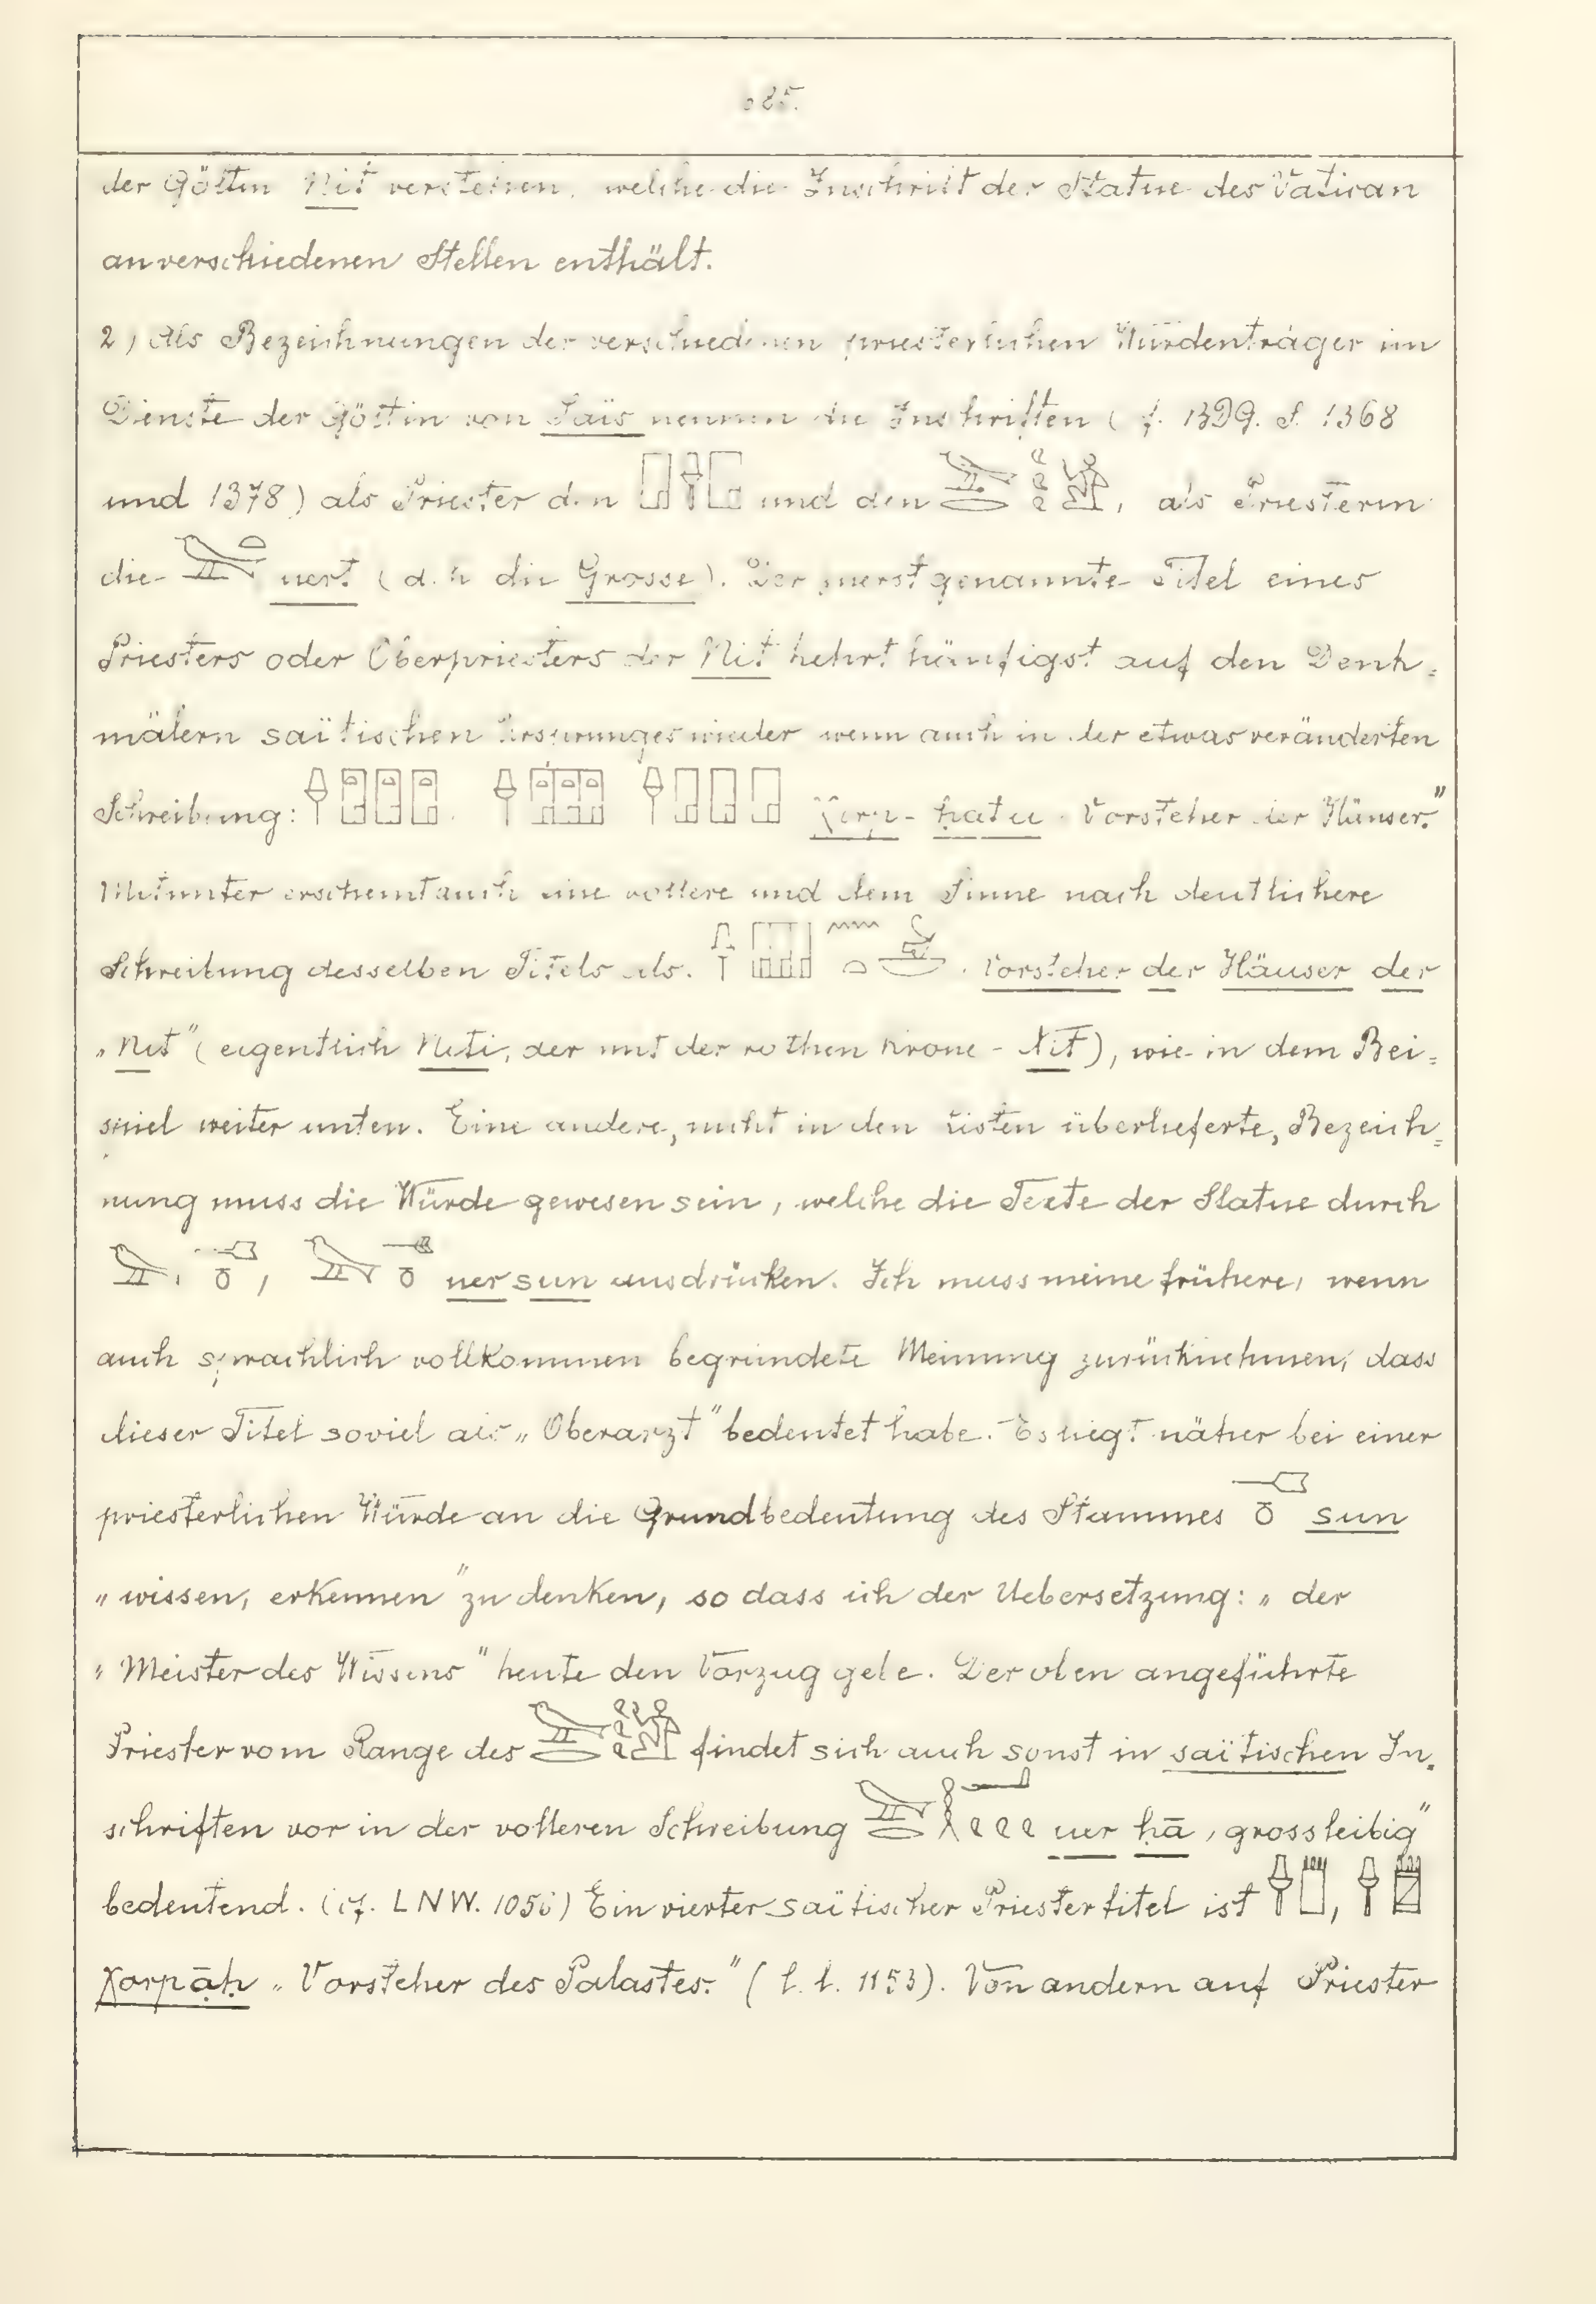 der Göttin Nit verstehen, welche die Inschrift der Statue des Vatican
an verschiedenen Stellen enthält.
2) Als Bezeichnungen der verschiedenen priesterlichen Würdenträger im
Dienste der Göttin von Saïs nennen die Inschriften ( 1399. S. 1368
und 1378) als Priester den und den , als Priesterin
die uert (d. h die Grosse). Der zuerst genannte Titel eines
Priesters oder Oberpriesters der Nit kehrt häufigst auf den Denk=
mälern saïtischen Ursprunges wieder wenn auch in der etwas veränderten
Schreibung: χerp-ḥatu Vorsteher der Häuser."
Mitunter erscheint auch eine vollere und dem Sinne nach deutlichere
Schreibung desselben Titels als. Vorsteher der Häuser der
„Nit" (eigentlich Neti, der mit der rothen Krone - Nit), wie in dem Bei=
spiel weiter unten. Eine andere, nicht in den Listen überlieferte, Bezeich=
nung muss die Würde gewesen sein, welche die Texte der Statue durch
, uer sun ausdrücken. Ich muss meine frühere, wenn
auch sprachlich vollkommen begründete Meinung zurücknehmen, dass
dieser Titel soviel als „Oberarzt" bedeutet habe. Es liegt näher bei einer
priesterlichen Würde an die Grundbedeutung des Stammes sun
„wissen, erkennen" zu denken, so dass ich der Uebersetzung: „der
„Meister des Wissens" heute den Vorzug gebe. Der oben angeführte
Priester vom Range des findet sich auch sonst in saïtischen In=
schriften vor in der volleren Schreibung uer ḥā „grossleibig"
bedeutend. (cf. LNW. ) Ein vierter saïtischer Priestertitel ist ,
χorp āḥ „Vorsteher des Palastes." (l. l. 1153). Von andern auf Priester